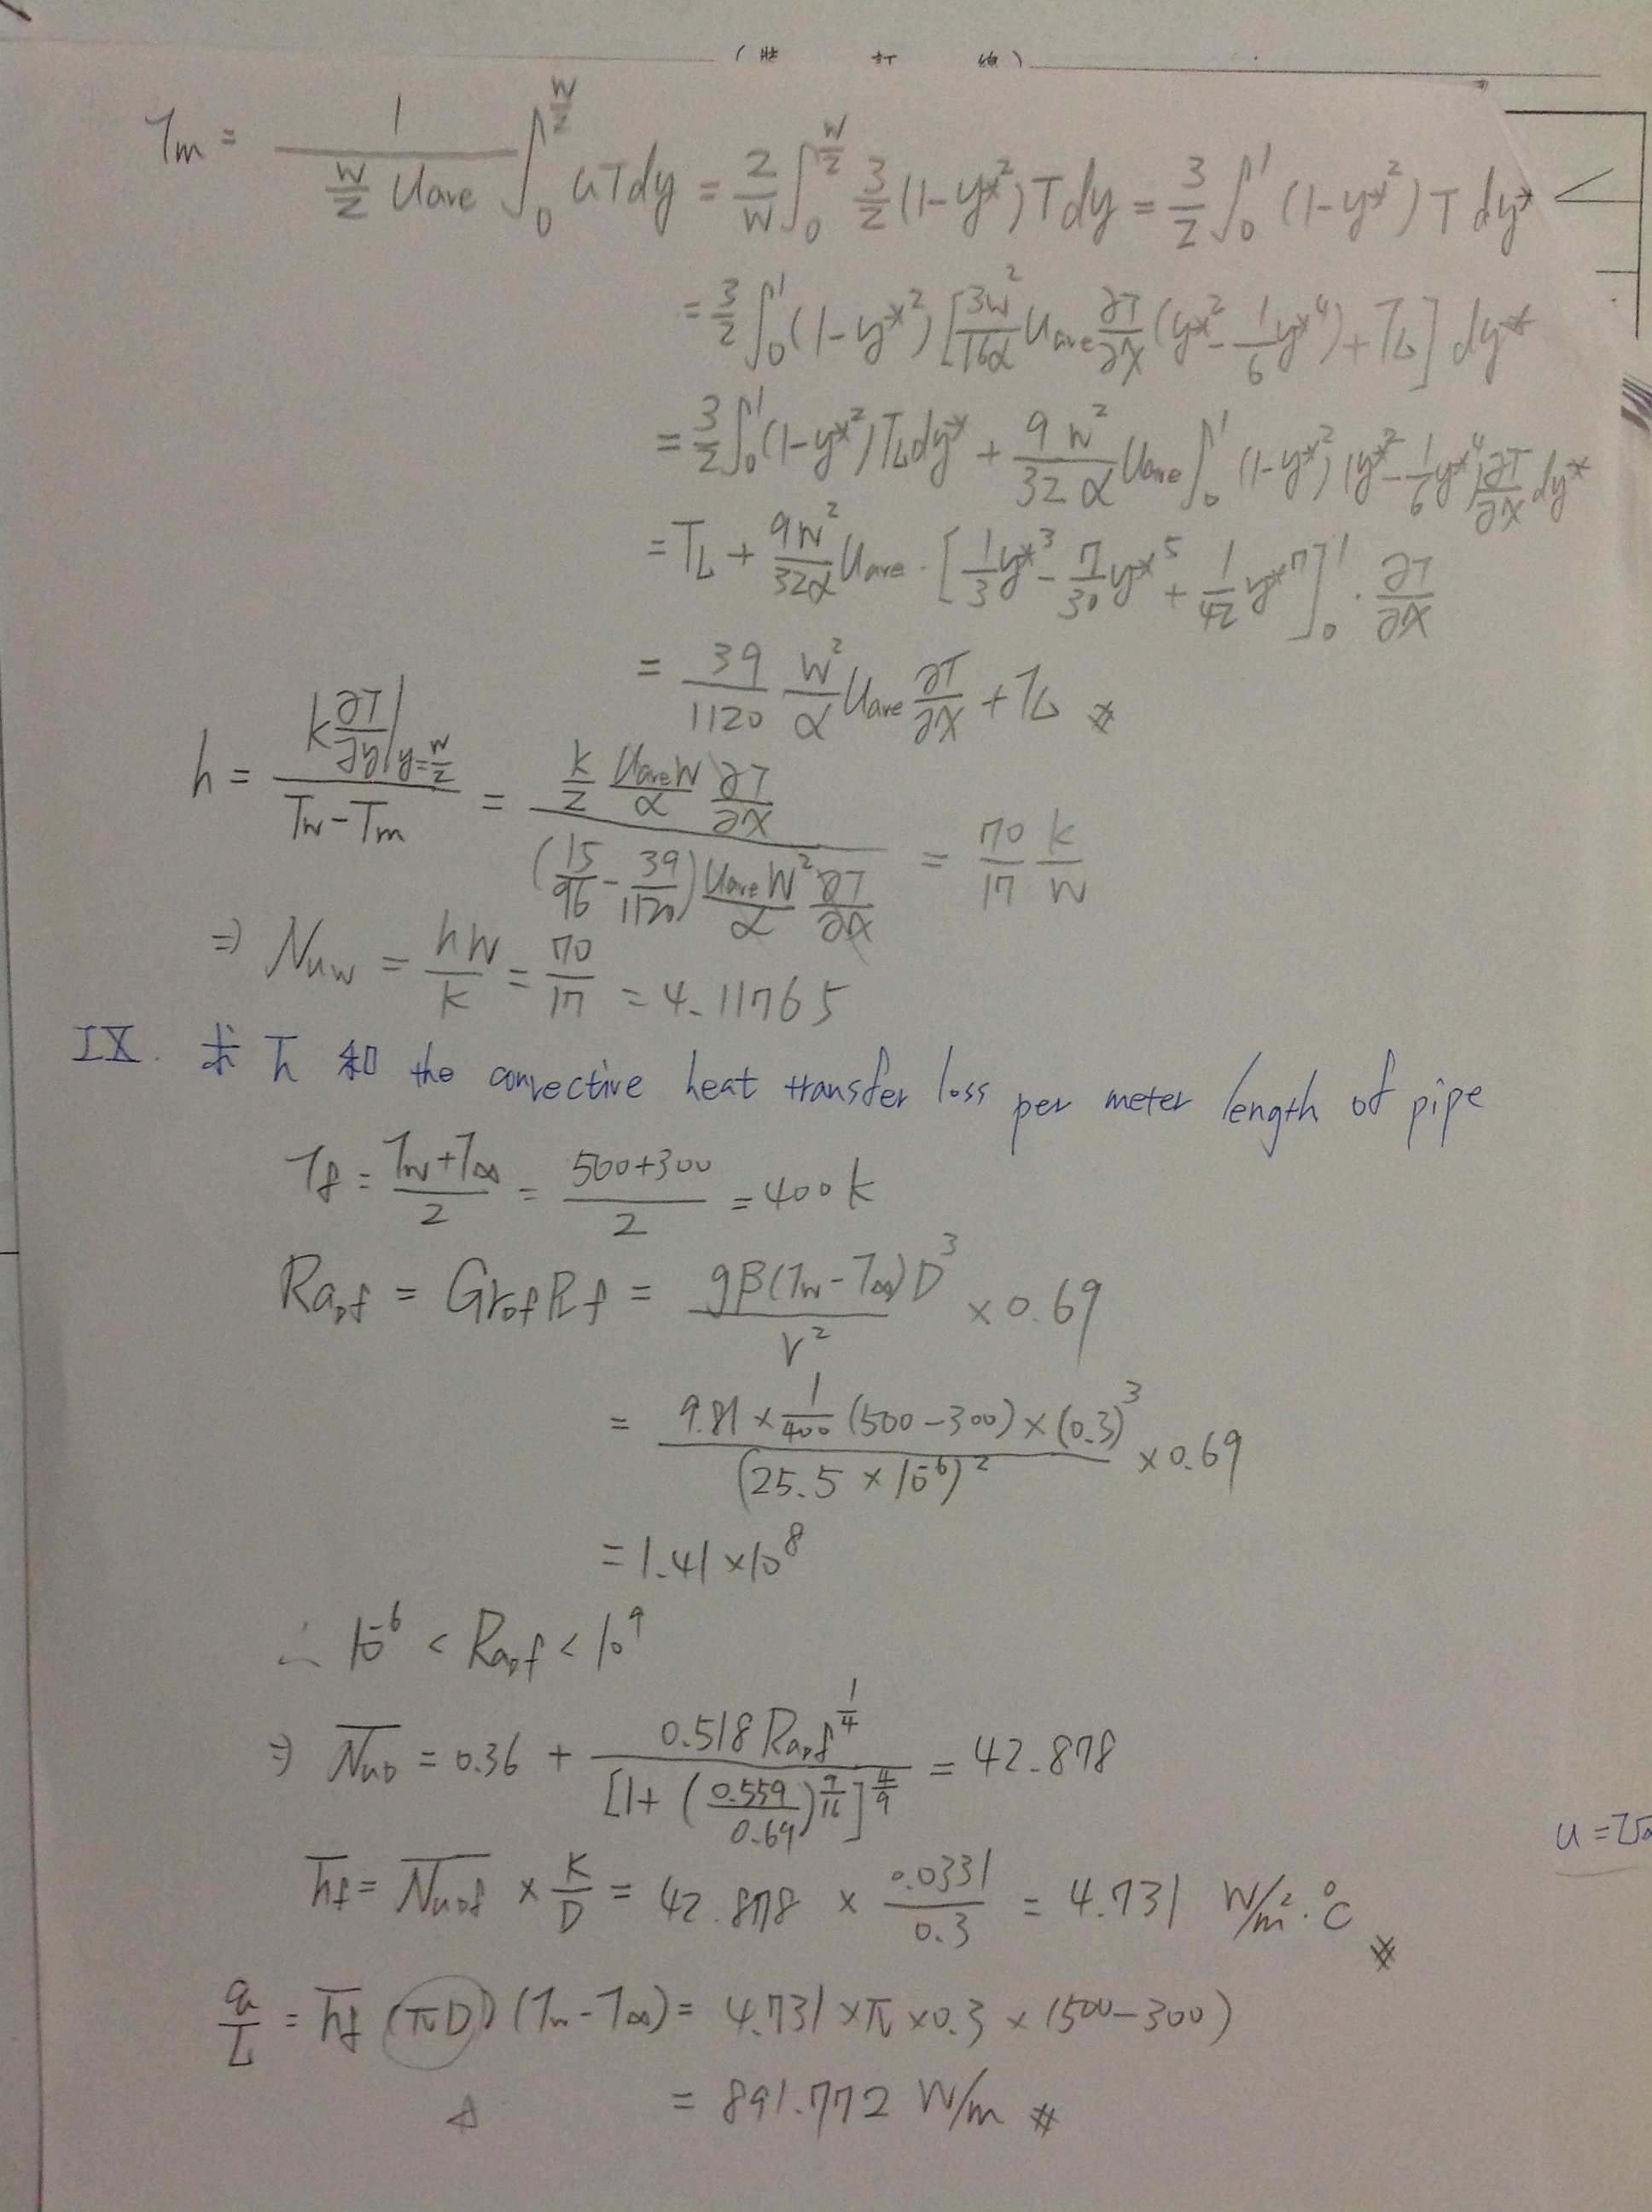 (裝 訂 線)
Tm = \frac{1}{\frac{W}{2} Uave} \int_0^{\frac{W}{2}} uTdy = \frac{2}{W} \int_0^{\frac{W}{2}} \frac{3}{2} (1-y*^2) T dy = \frac{3}{2} \int_0^1 (1-y*^2) T dy*
= \frac{3}{2} \int_0^1 (1-y*^2) [\frac{3W^2}{16α} Uave \frac{∂T}{∂x} (y*^2 - \frac{1}{6} y*^4) + TL] dy*
= \frac{3}{2} \int_0^1 (1-y*^2) TL dy* + \frac{9W^2}{32α} Uave \int_0^1 (1-y*^2)(y*^2 - \frac{1}{6} y*^4) \frac{∂T}{∂x} dy*
= TL + \frac{9W^2}{32α} Uave · [\frac{1}{3} y*^3 - \frac{7}{30} y*^5 + \frac{1}{42} y*^7]_0^1 · \frac{∂T}{∂x}
= \frac{39}{1120} \frac{W^2}{α} Uave \frac{∂T}{∂x} + TL #
h = \frac{k \frac{∂T}{∂y}|_{y=\frac{W}{2}}}{Tw - Tm} = \frac{\frac{k}{2} \frac{Uave W}{α} \frac{∂T}{∂x}}{(\frac{15}{96} - \frac{39}{1120}) \frac{Uave W^2}{α} \frac{∂T}{∂x}} = \frac{70}{17} \frac{k}{W}
⇒ Nuw = \frac{hW}{k} = \frac{70}{17} = 4.11765
IX. 求 \overline{h} 和 the convective heat transfer loss per meter length of pipe
Tf = \frac{Tw + T∞}{2} = \frac{500+300}{2} = 400 k
RaDf = GrDf Prf = \frac{gβ(Tw - T∞)D^3}{ν^2} × 0.69
= \frac{9.81 × \frac{1}{400} (500-300) × (0.3)^3}{(25.5 × 10^{-6})^2} × 0.69
= 1.41 × 10^8
∴ 10^{-6} < RaDf < 10^9
⇒ \overline{NuD} = 0.36 + \frac{0.518 RaDf^{\frac{1}{4}}}{[1 + (\frac{0.559}{0.69})^{\frac{9}{16}}]^{\frac{4}{9}}} = 42.878
u = 
\overline{hf} = \overline{NuDf} × \frac{k}{D} = 42.878 × \frac{0.0331}{0.3} = 4.731 W/m^2·°C #
\frac{q}{L} = \overline{hf} (πD) (Tw - T∞) = 4.731 × π × 0.3 × (500-300)
= 891.772 W/m #